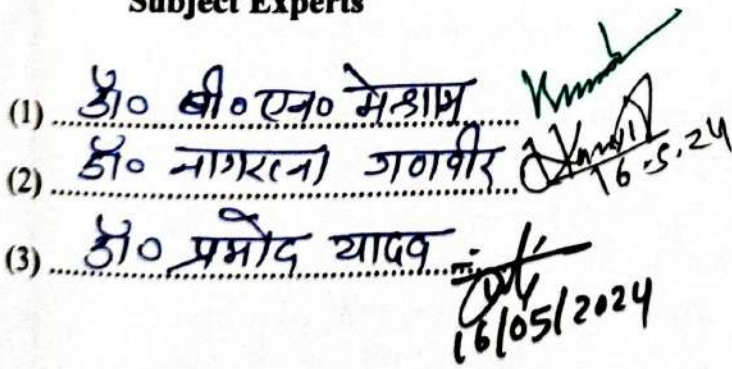 Subject Experts
(1) डॉ० बी०एन० मेश्राम
(2) डॉ० नागरत्ना गणवीर 16-5-24
(3) डॉ० प्रमोद यादव
16/05/2024